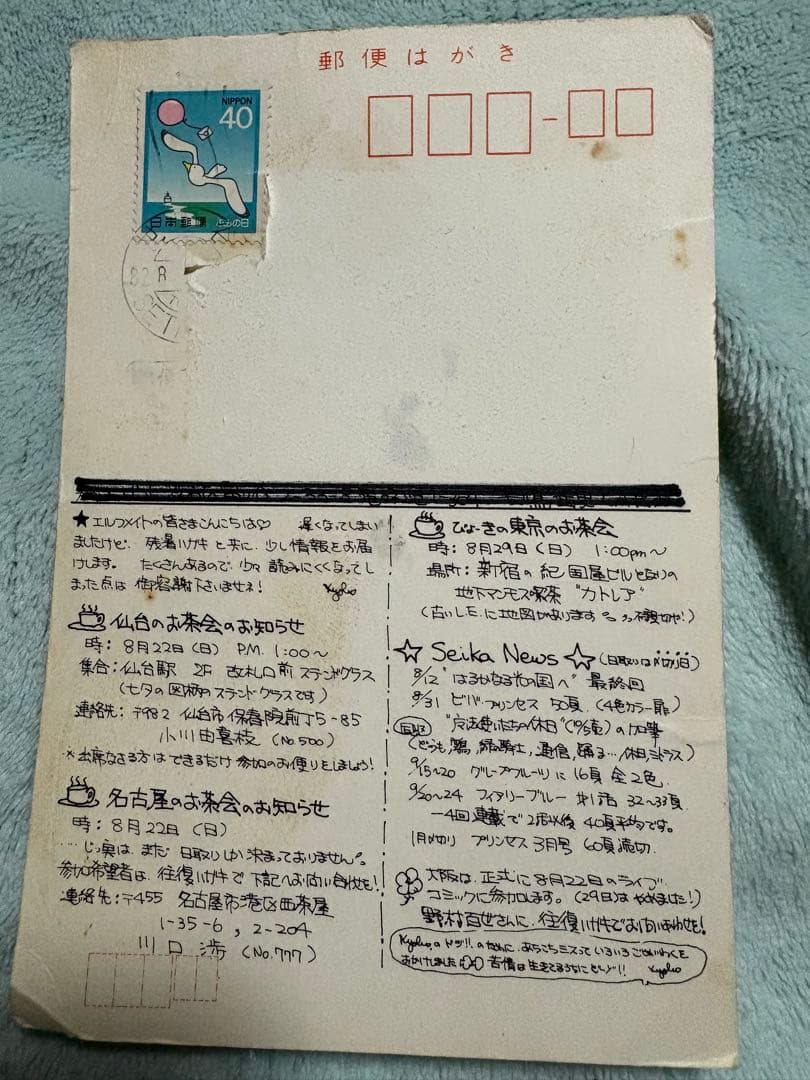 郵便はがき
NIPPON
40
日本郵便 ふみの日
82.8
★エルフメイトの皆さまこんにちは♡ 遅くなってしまい
ましたけど、残暑ハガキと共に、少し情報をお届
けします。たくさんあるので、少々読みにくくなってし
まった点は御容赦下さいませネ! Kyoko
仙台のお茶会のお知らせ
時:8月22日(日) P.M. 1:00〜
集合:仙台駅 2F 改札口前 ステンドグラス
(七夕の図柄のステンドグラスです)
連絡先:〒982 仙台市保春院前丁5-85
小川由喜枝 (No.500)
*出席なさる方はできるだけ参加のお便りをしましょう!
名古屋のお茶会のお知らせ
時:8月22日(日)
…じっ実は、まだ日取りしか決まっておりません。
参加希望者は、往復ハガキで下記へお問い合わせを!
連絡先:〒455 名古屋市港区西茶屋
1-35-6, 2-204
川口渉 (No.777)
びょーきの東京のお茶会
時:8月29日(日) 1:00pm〜
場所:新宿の紀国屋ビルとなりの
地下マンモス喫茶 "カトレア"
(古いL.E.に地図があります
☆ Seika News ☆ (日取りは〆切り日)
8/12 "はるかなる光の国へ" 最終回
8/31 ビバプリンセス 50頁 (4色カラー扉)
"魔法使いたちの休日" の加筆
9/15〜20 グレープフルーツに16頁 全2色
9/20〜24 フィアリーブルー 第1話 32〜33頁
一4回連載で2話以後 40頁平均です。
1月〆切り プリンセス3月号 60頁読切
大阪は、正式に8月22日のライブ
コミックに参加します。(29日はやめました!)
野村百世さんに、往復ハガキでお問いあわせを!
Kyokoのドジ!!のために、あちこちミスっていろいろごめいわくを
おかけしました 苦情は生きてるうちにどしどし!! Kyoko